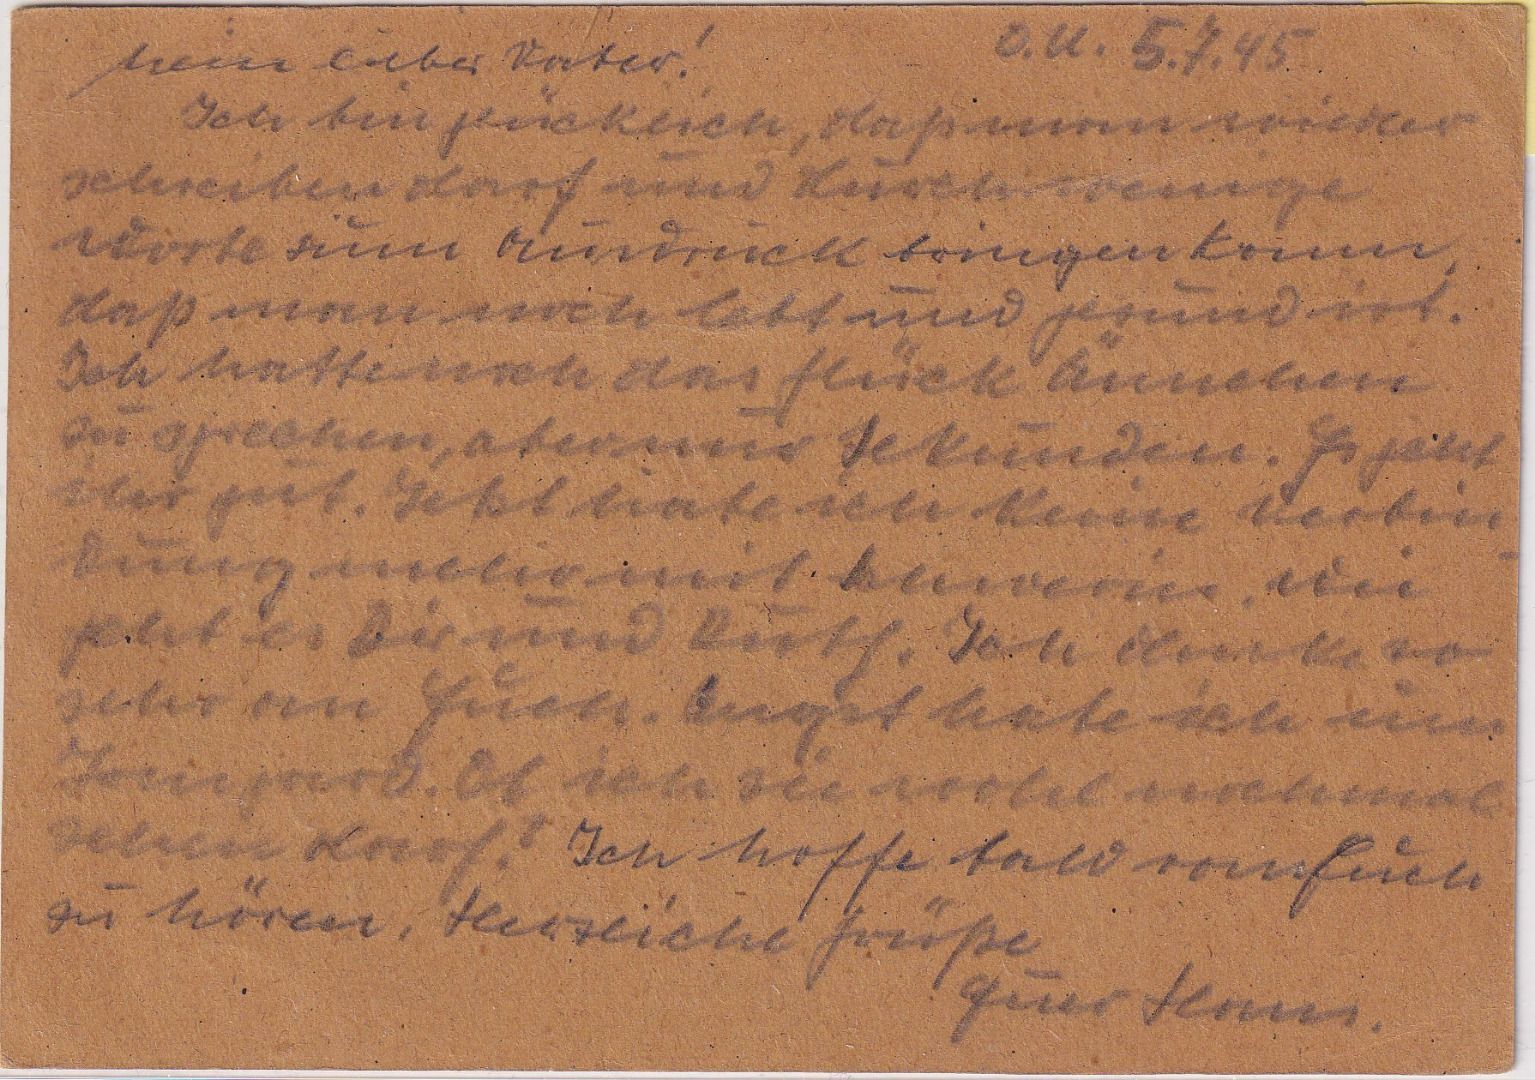 O.U. 5.7.45
Mein lieber Vater!
Ich bin glücklich, daß man wieder
schreiben darf und durch wenige
Worte zum Ausdruck bringen kann,
daß man noch lebt und gesund ist.
Ich hatte noch das Glück Ännchen
zu sprechen, aber nur Sekunden. Es geht
ihr gut. Jetzt habe ich keine Verbin
dung mehr mit Schwerin. Wie
geht es Dir und Ruth. Ich denke so
sehr an Euch. Angst habe ich um
Irmgard. Ob ich sie wohl nochmal
sehen darf! Ich hoffe bald von Euch
zu hören. Herzliche Grüße
Euer Hans.